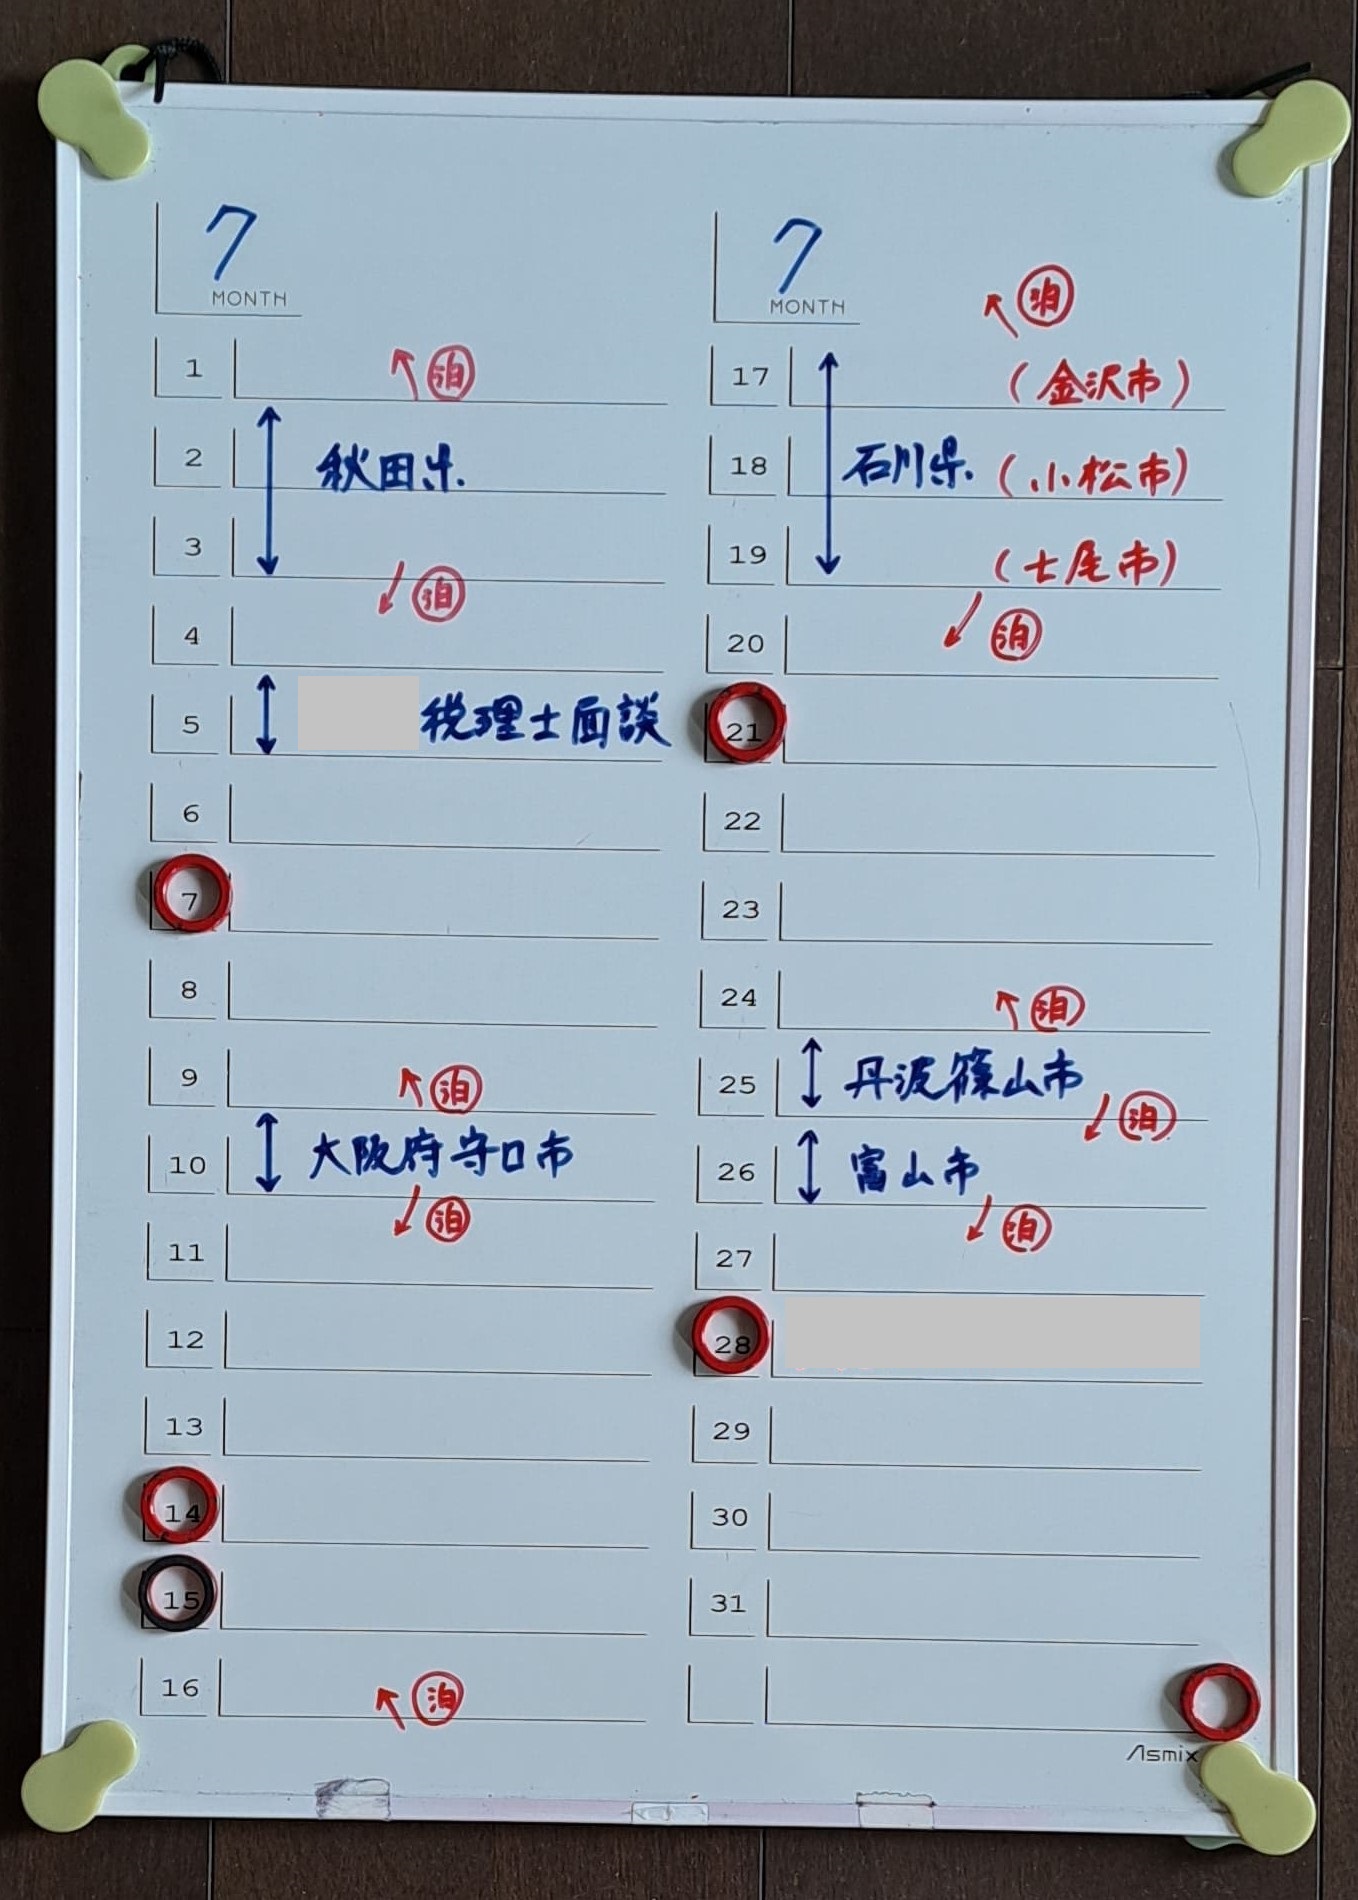 7
MONTH
1 泊
2 秋田県
3 泊
4
5 税理士面談
6
7
8
9 泊
10 大阪府守口市
泊
11
12
13
14
15
16 泊
7
MONTH
泊
17 (金沢市)
18 石川県 (小松市)
19 (七尾市)
20 泊
21
22
23
24 泊
25 丹波篠山市 泊
26 富山市
27 泊
28
29
30
31
Asmix